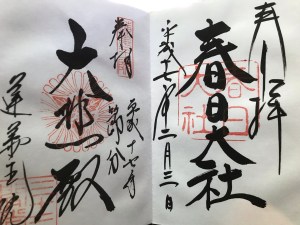 奉拝
春日大社
平成十七年二月三日
春日大社
奉拝
平成十七年
節分
大悲殿
蓮華王院